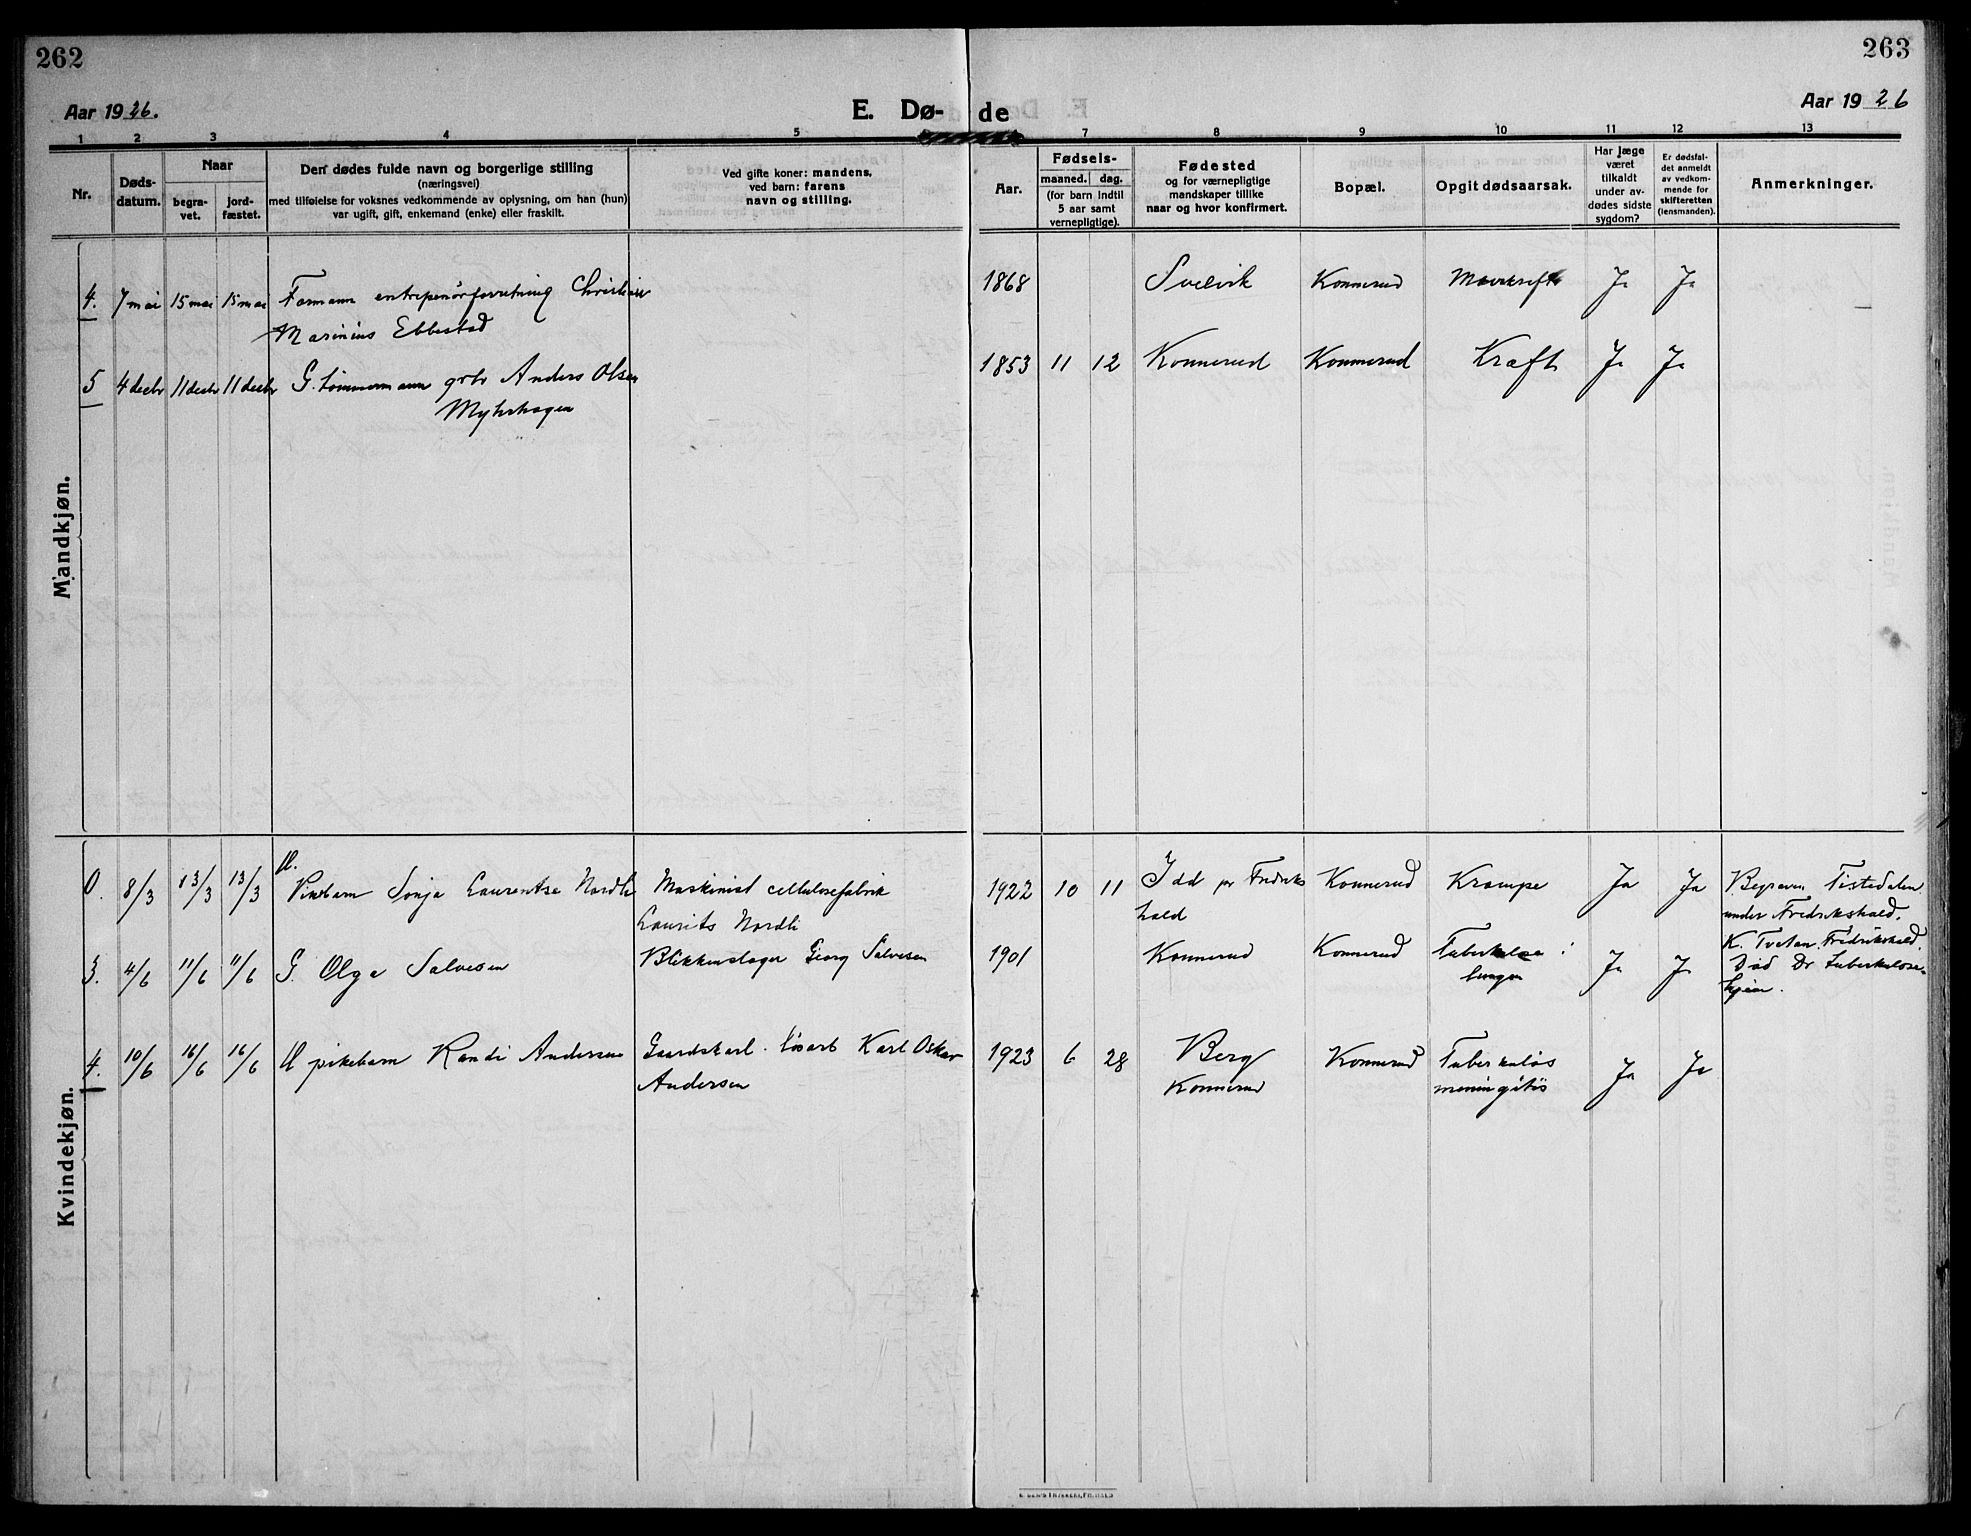 262
263
Aar 1926.
E. Dø-
de
Aar 1926
1 2 3 4 5 7 8 9 10 11 12 13
Nr.
Døds-
datum.
Naar
begra-
vet.
jord-
fæstet.
Den dødes fulde navn og borgerlige stilling
(næringsvei)
med tilføielse for voksnes vedkommende av oplysning, om han (hun)
var ugift, gift, enkemand (enke) eller fraskilt.
Ved gifte koner: mandens,
ved barn: farens
navn og stilling.
Aar.
Fødsels-
maaned. dag.
(for barn indtil
5 aar samt
vernepligtige).
Fødested
og for værnepligtige
mandskaper tillike
naar og hvor konfirmert.
Bopæl.
Opgit dødsaarsak.
Har læge
været
tilkaldt
under av-
dødes sidste
sygdom?
Er dødsfal-
det anmeldt
av vedkom-
mende for
skifteretten
(lensmanden).
Anmerkninger.
Mandkjøn.
4. 7 mai 15 mai 15 mai Formann entreprenørforretning Christian 1868 Svelvik Konnerud Mavekreft Ja Ja
Marinius Ebbestad
5 4 decbr 11 decbr 11 decbr G. tømmermann Anders Olsen 1853 11 12 Konnerud Konnerud Kræft Ja Ja
Myhrhagen
Kvindekjøn.
0. 8/3 13/3 13/3 U. Pikebarn Sonja Laurentse Nordli Maskinist cellulosefabrik 1922 10 11 Idd pr Fredriks Konnerud Krampe Ja Ja Begraven Tistedalen
Laurits Nordli hald under Fredrikshald.
3. 4/6 11/6 11/6 G. Olga Salvesen Blikkenslager Georg Salvesen 1901 Konnerud Konnerud Tuberkulose i Ja Ja K. Tvetan. Fredrikshald.
lungen Død Dr. tuberkulose-
hjem.
4. 10/6 16/6 16/6 U pikebarn Randi Andersen Gaardskarl. løsarb Karl Oskar 1923 6 28 Berg Konnerud Tuberkuløs Ja Ja
Andersen Konnerud meningitis